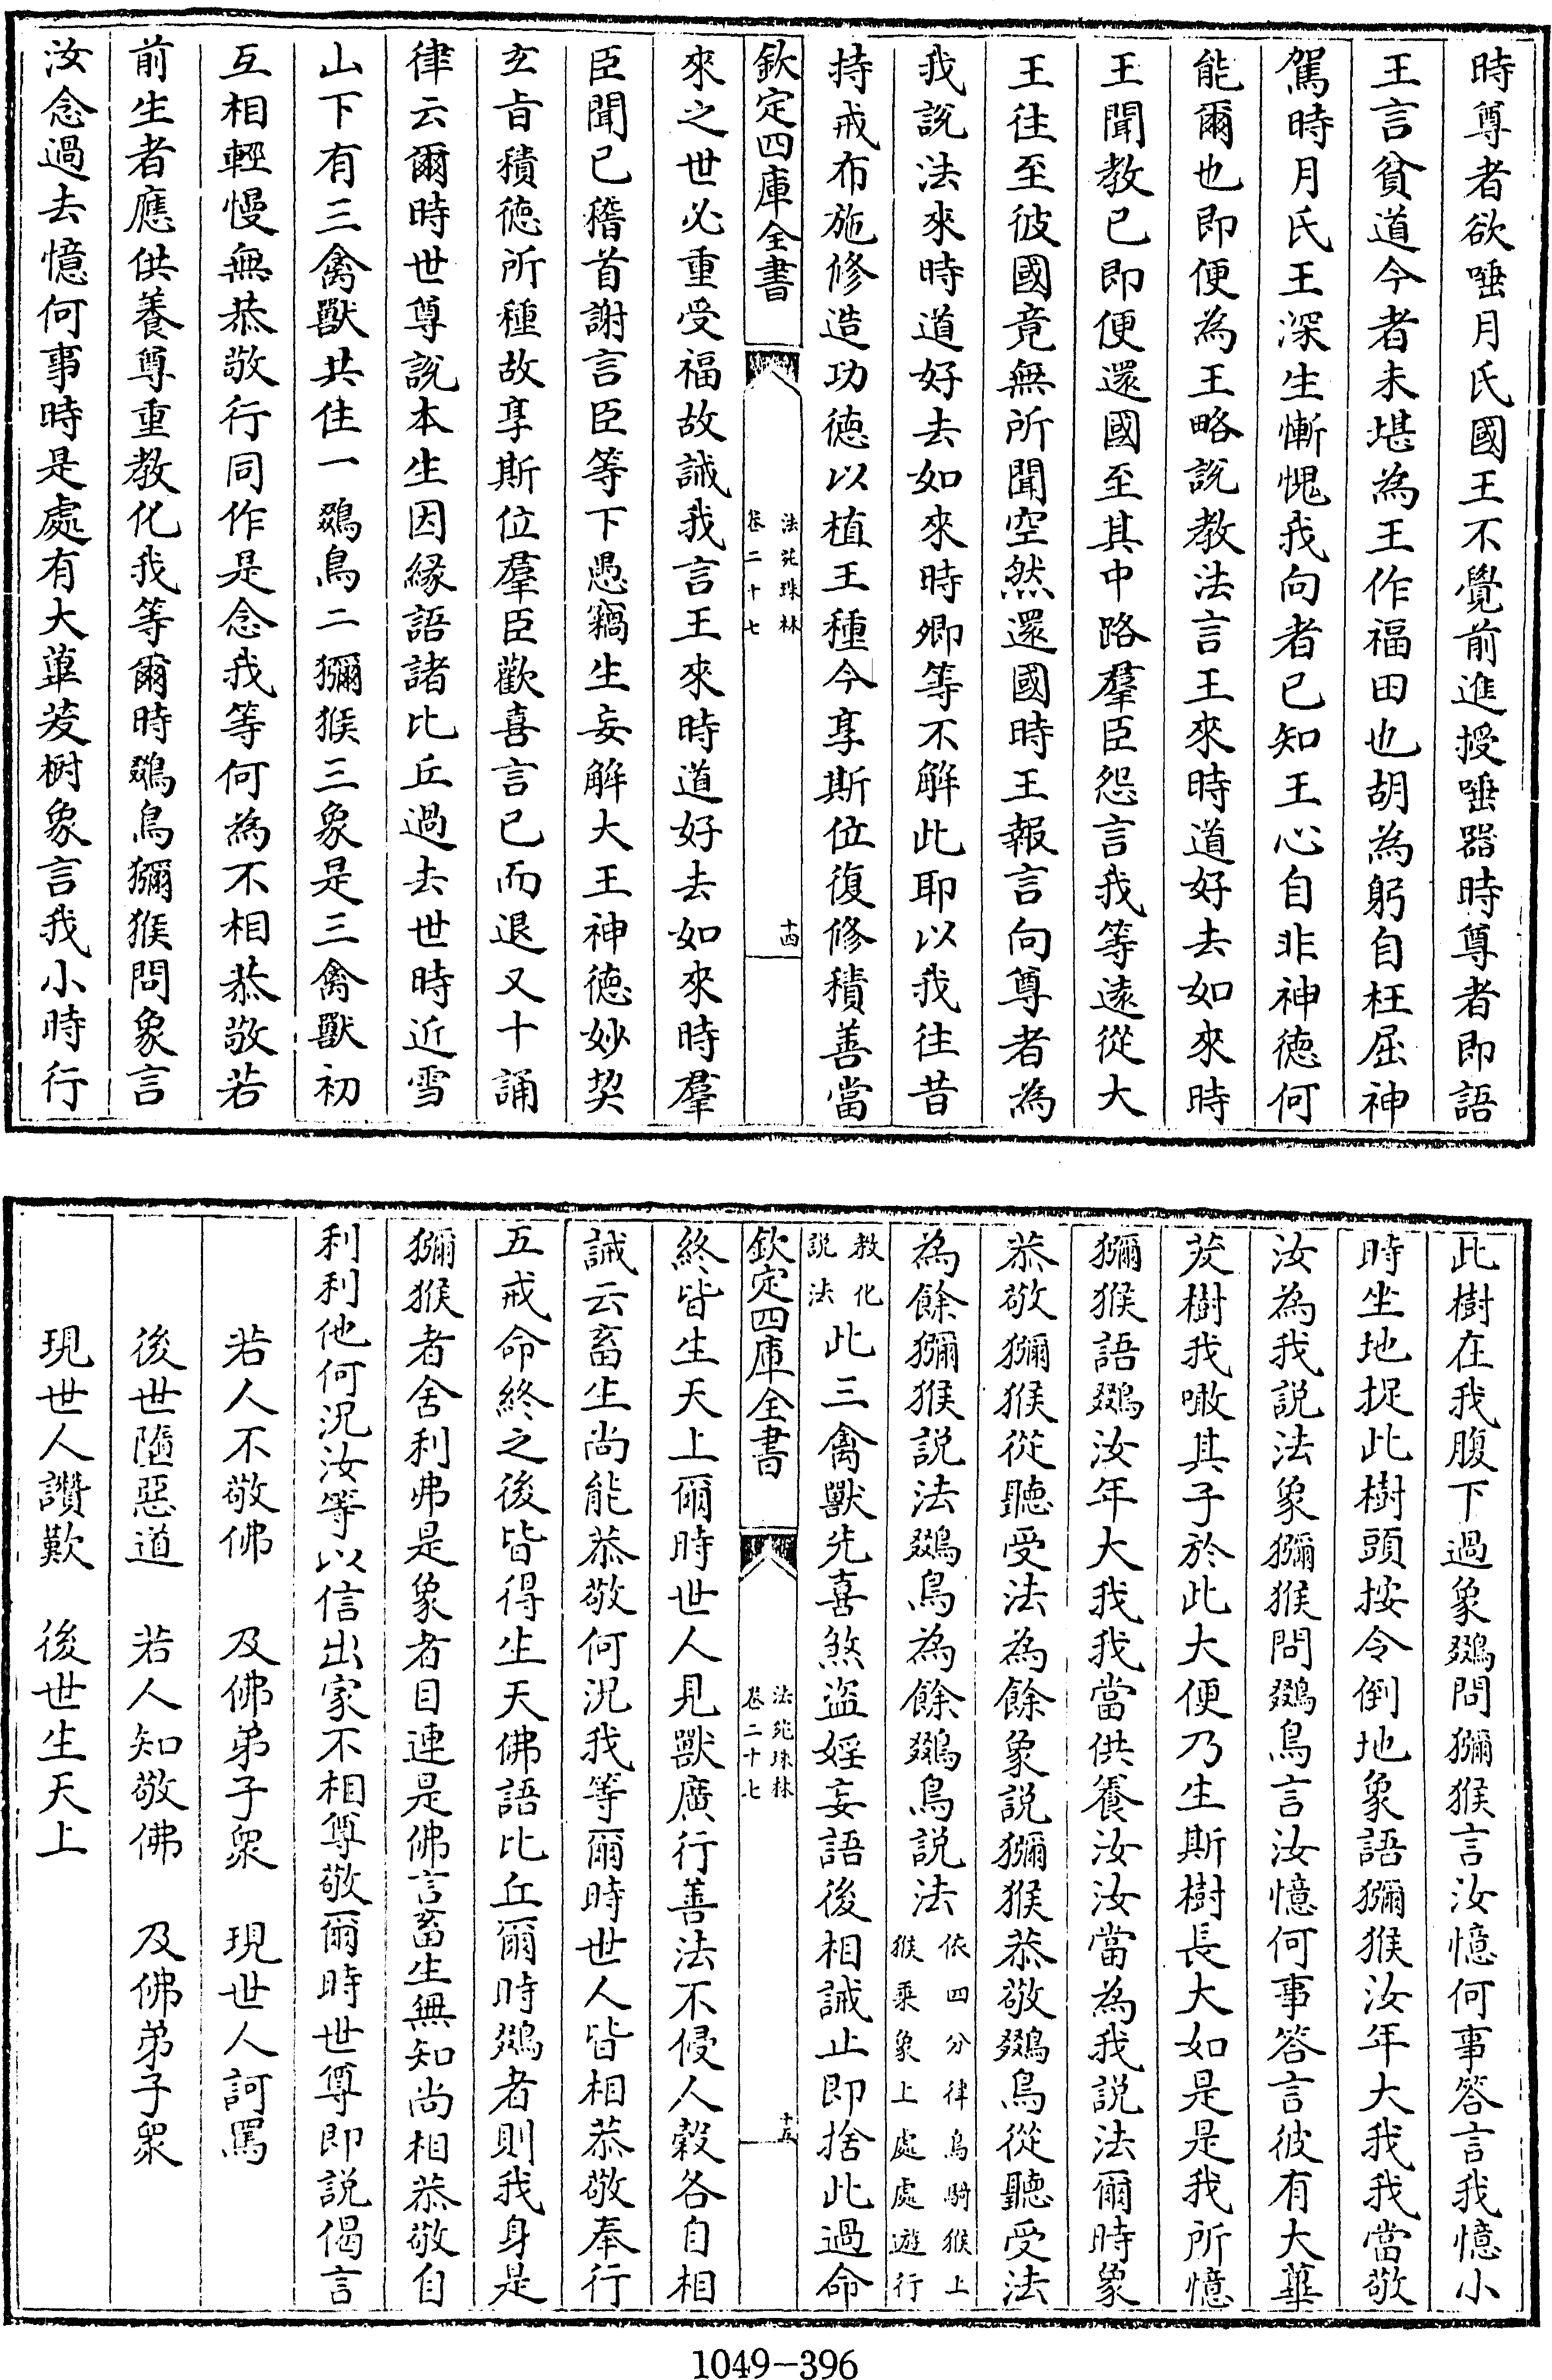 時尊者欲唾月氏國王不覺前進授唾器時尊者即語
王言貧道今者未堪為王作福田也胡為躬自枉屈神
駕時月氏王深生慚愧我向者已知王心自非神德何
能爾也即便為王略說教法言王來時道好去如來時
王聞教已即便還國至其中路羣臣怨言我等遠從大
王往至彼國竟無所聞空然還國時王報言向尊者為
我說法來時道好去如來時卿等不解此耶以我往昔
持戒布施修造功德以植王種今享斯位復修積善當
欽定四庫全書
法苑珠林
卷二十七
十四
來之世必重受福故誡我言王來時道好去如來時羣
臣聞已稽首謝言臣等下愚竊生妄解大王神德妙契
玄旨積德所種故享斯位羣臣歡喜言已而退又十誦
律云爾時世尊說本生因緣語諸比丘過去世時近雪
山下有三禽獸共住一鵽鳥二獼猴三象是三禽獸初
互相輕慢無恭敬行同作是念我等何為不相恭敬若
前生者應供養尊重教化我等爾時鵽鳥獼猴問象言
汝念過去憶何事時是處有大蓽茇樹象言我小時行
此樹在我腹下過象鵽問獼猴言汝憶何事答言我憶小
時坐地捉此樹頭按令倒地象語獼猴汝年大我我當敬
汝為我說法象獼猴問鵽鳥言汝憶何事答言彼有大蓽
茇樹我噉其子於此大便乃生斯樹長大如是是我所憶
獼猴語鵽汝年大我我當供養汝汝當為我說法爾時象
恭敬獼猴從聽受法為餘象說獼猴恭敬鵽鳥從聽受法
為餘獼猴說法鵽鳥為餘鵽鳥說法依四分律鳥騎猴上猴乘象上處處遊行
教化說法此三禽獸先喜煞盜婬妄語後相誡止即捨此過命
欽定四庫全書
法苑珠林
卷二十七
十五
終皆生天上爾時世人見獸廣行善法不侵人穀各自相
誡云畜生尚能恭敬何況我等爾時世人皆相恭敬奉行
五戒命終之後皆得生天佛語比丘爾時鵽者則我身是
獼猴者舍利弗是象者目連是佛言畜生無知尚相恭敬自
利利他何況汝等以信出家不相尊敬爾時世尊即說偈言
若人不敬佛　及佛弟子眾　現世人訶罵
後世墮惡道　若人知敬佛　及佛弟子眾
現世人讚歎　後世生天上
1049-396